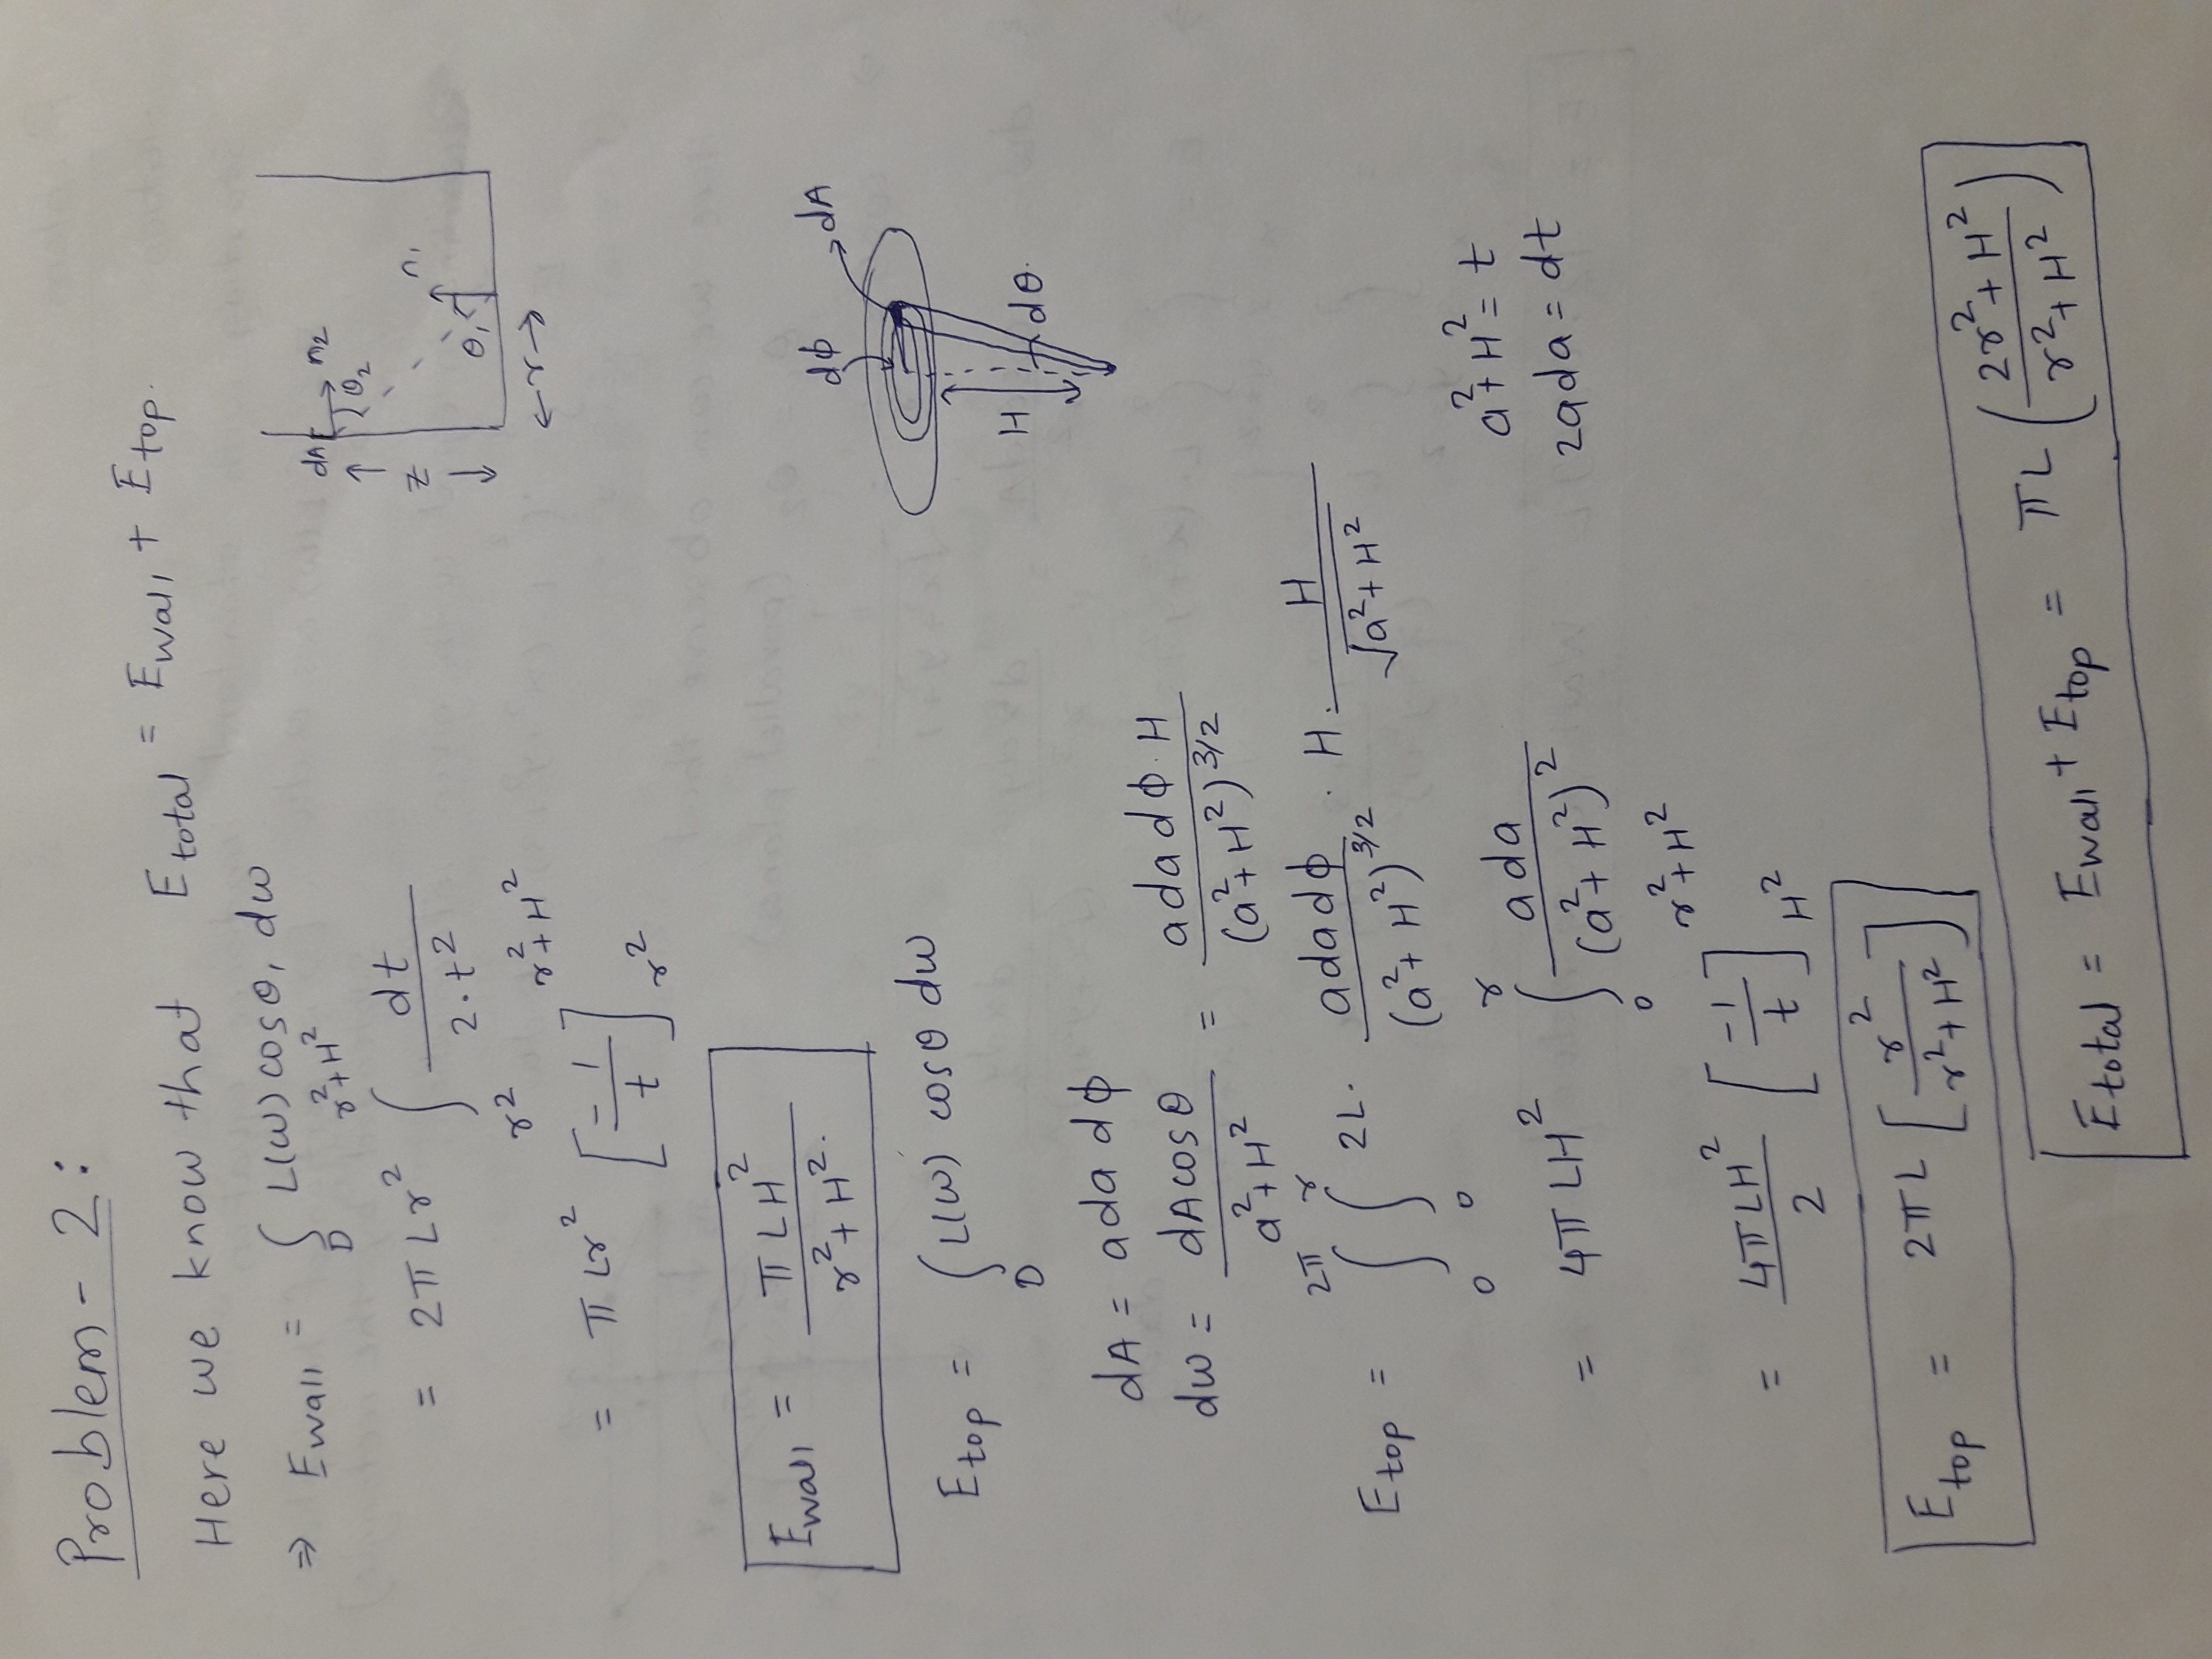 Problem - 2 :
Here we know that E total = E wall + E top.
⇒ E wall = ∫_D L(ω) cosθ₁ dω
= 2π L r² ∫_{r²}^{r²+H²} dt / (2·t²)
= π L r² [ -1/t ]_{r²}^{r²+H²}
E wall = π L H² / (r² + H²).
dA n₂
θ₂
z n₁
θ₁
r
E top = ∫_D L(ω) cosθ dω
dϕ dA
H dθ.
dA = a da dϕ
dω = dA cosθ / (a² + H²) = a da dϕ · H / (a² + H²)^{3/2}
E top = ∫_0^{2π} ∫_0^r 2L · a da dϕ / (a² + H²)^{3/2} · H · H / √(a² + H²)
= 4π L H² ∫_0^r a da / (a² + H²)²
a² + H² = t
2a da = dt
= 4π L H² / 2 [ -1/t ]_{H²}^{r²+H²}
E top = 2π L [ r² / (r² + H²) ]
E total = E wall + E top = π L ( (2r² + H²) / (r² + H²) )